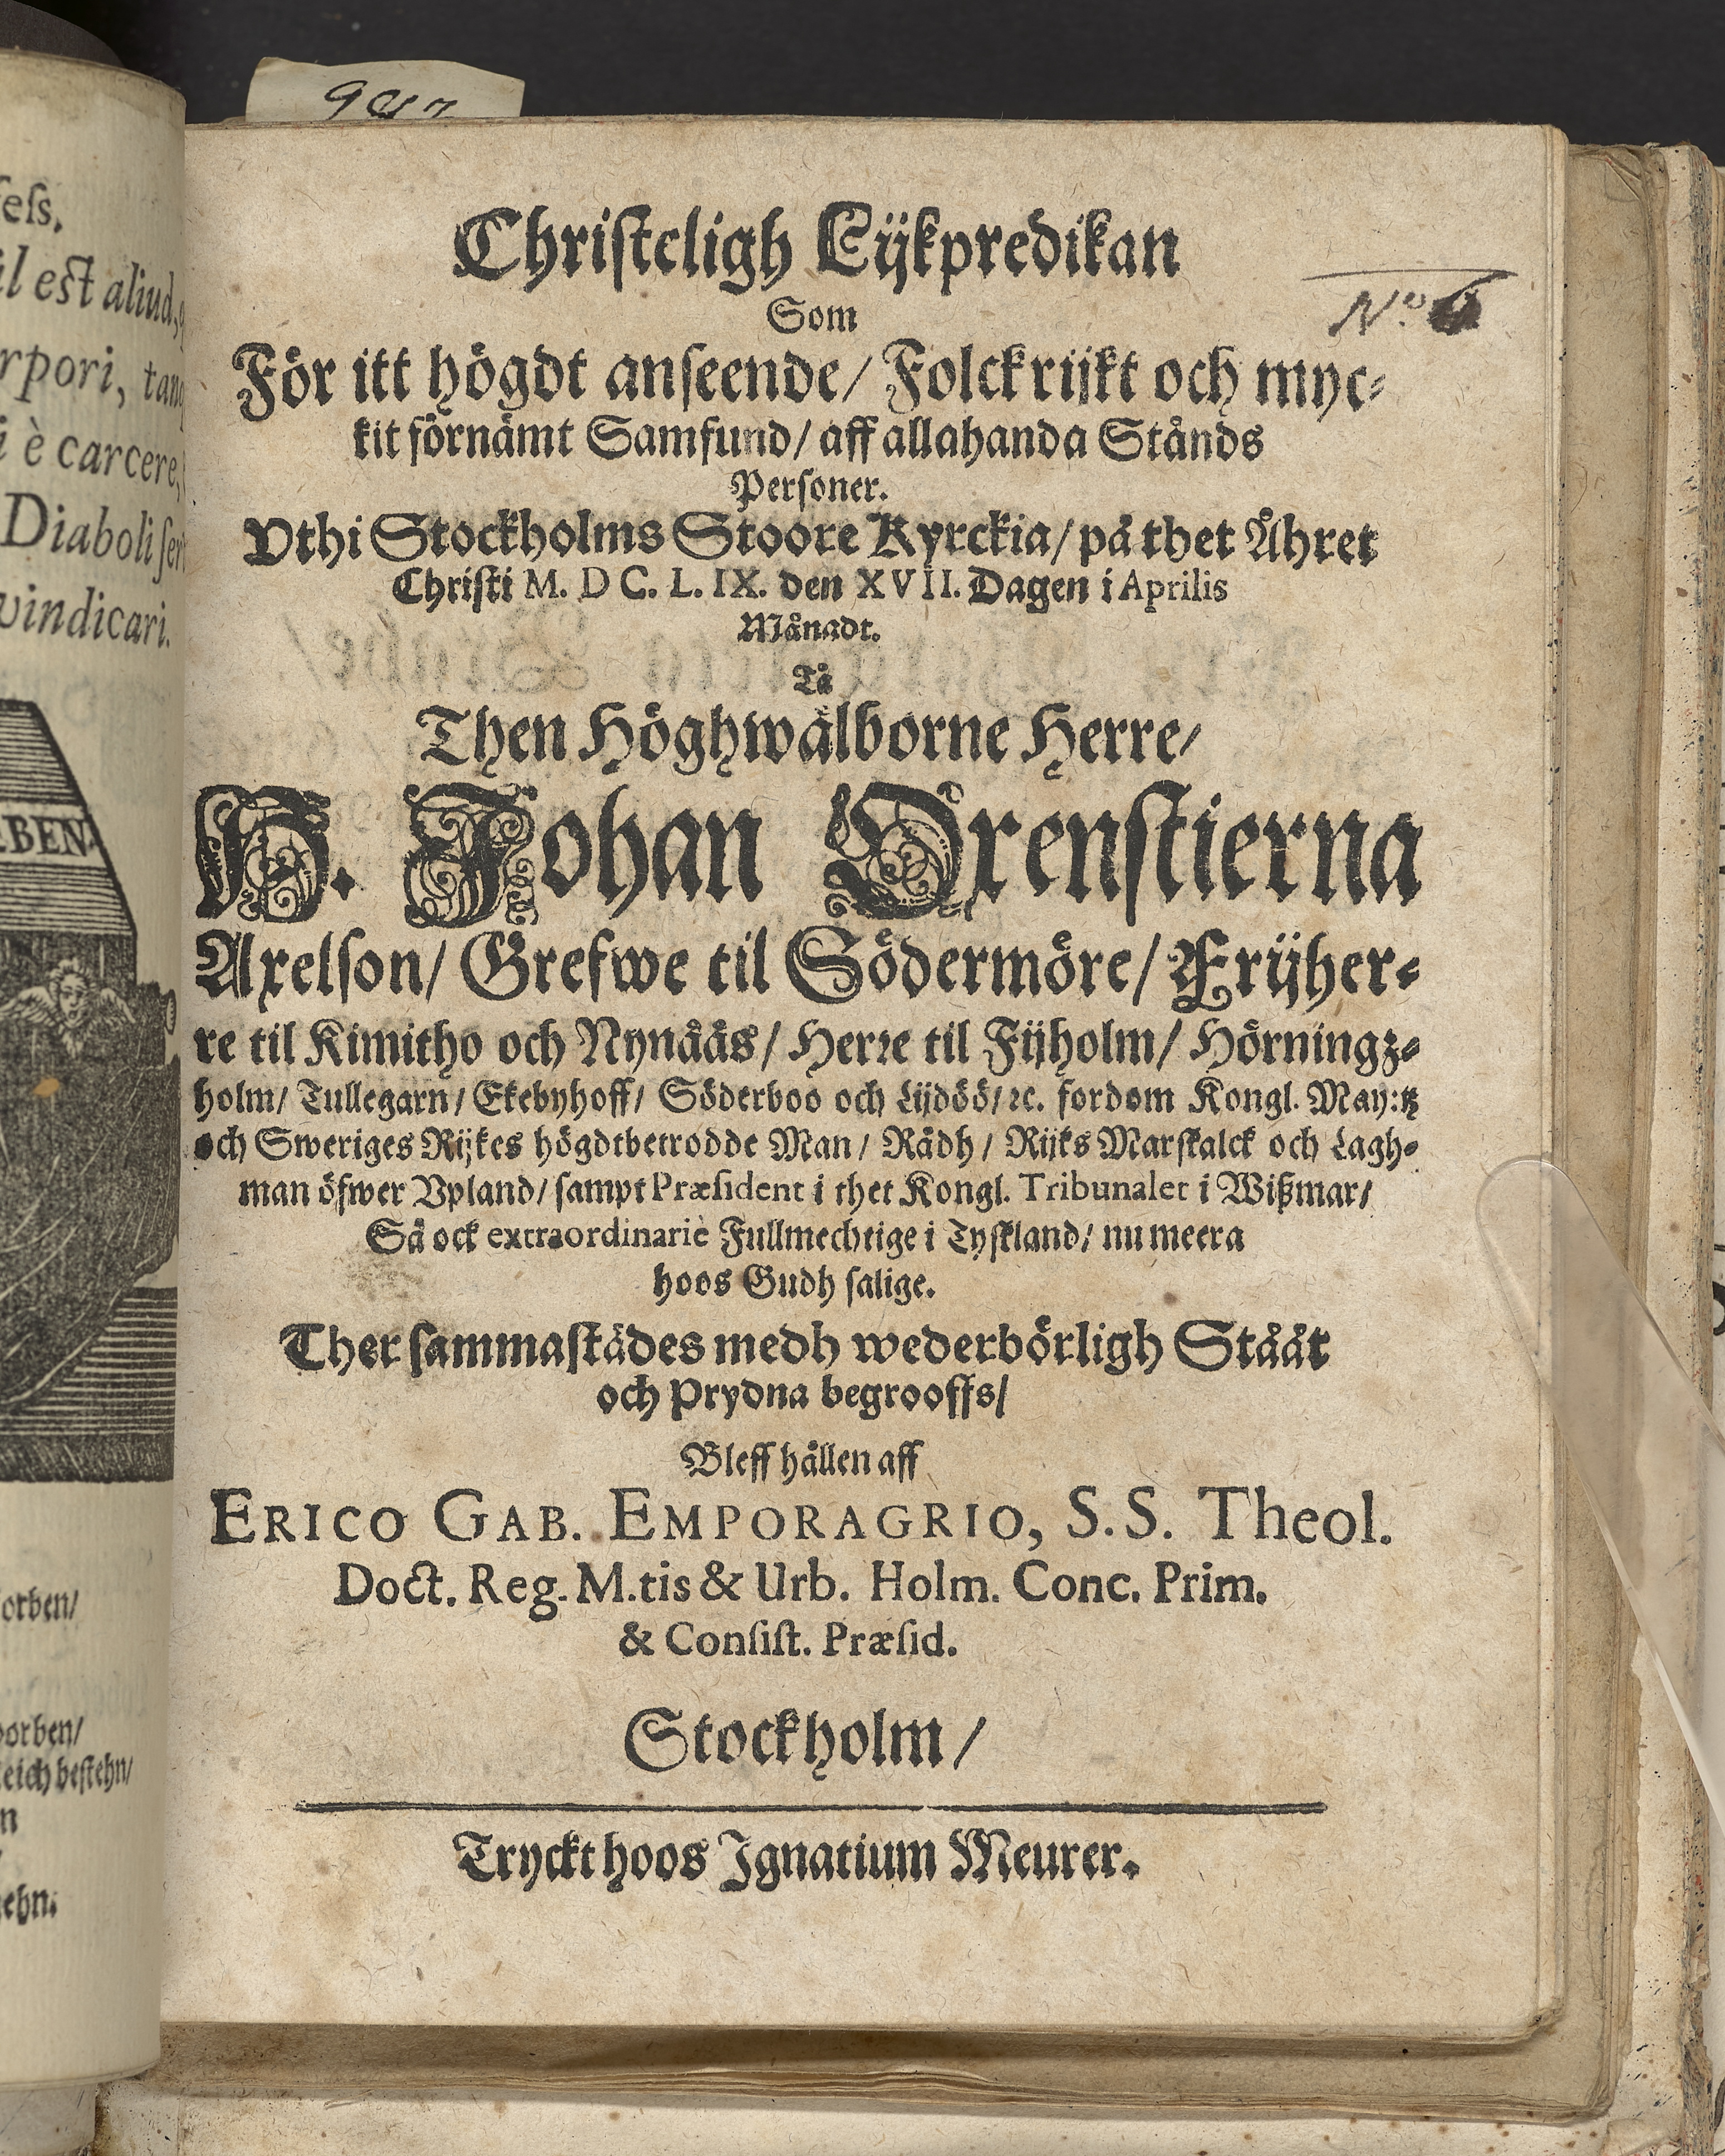 9
eſs,
il est aliud,
rpori, tan
i è carcere,
Diaboli ſer
vindicari.
BEN
orben/
orben/
eich beſtehn/
n
ehn.
Chriſteligh Lijkpredikan
Som
För itt högdt anſeende/ Folckrijkt och myc⸗
kit förnämt Samfund/ aff allahanda Stånds
Perſoner.
Vthi Stockholms Stoore Kyrckia/ på thet Åhret
Chriſti M. D C. L. IX. den XVII. Dagen i Aprilis
Månadt.
Tå
Then Höghwälborne Herre/
H. Johan Oxenſtierna
Axelſon/ Grefwe til Södermöre/ Frijher⸗
re til Kimitho och Nynääs/ Herꝛe til Fijholm/ Hörningz⸗
holm/ Tullegarn/ Ekebyhoff/ Söderboo och Lijdöö/ ꝛc. fordom Kongl. May:tz
och Sweriges Rijkes högdtbetrodde Man/ Rådh/ Rijks Marſkalck och Lagh⸗
man öfwer Vpland/ ſampt Præſident i thet Kongl. Tribunalet i Wißmar/
Så ock extraordinariè Fullmechtige i Tyſkland/ nu meera
hoos Gudh ſalige.
Ther ſammaſtädes medh wederbörligh Stååt
och Prydna begrooffs/
Bleff hållen aff
ERICO GAB. EMPORAGRIO, S.S. Theol.
Doct. Reg. M.tis & Urb. Holm. Conc. Prim.
& Conſiſt. Præſid.
Stockholm/
Tryckt hoos Ignatium Meurer.
No.